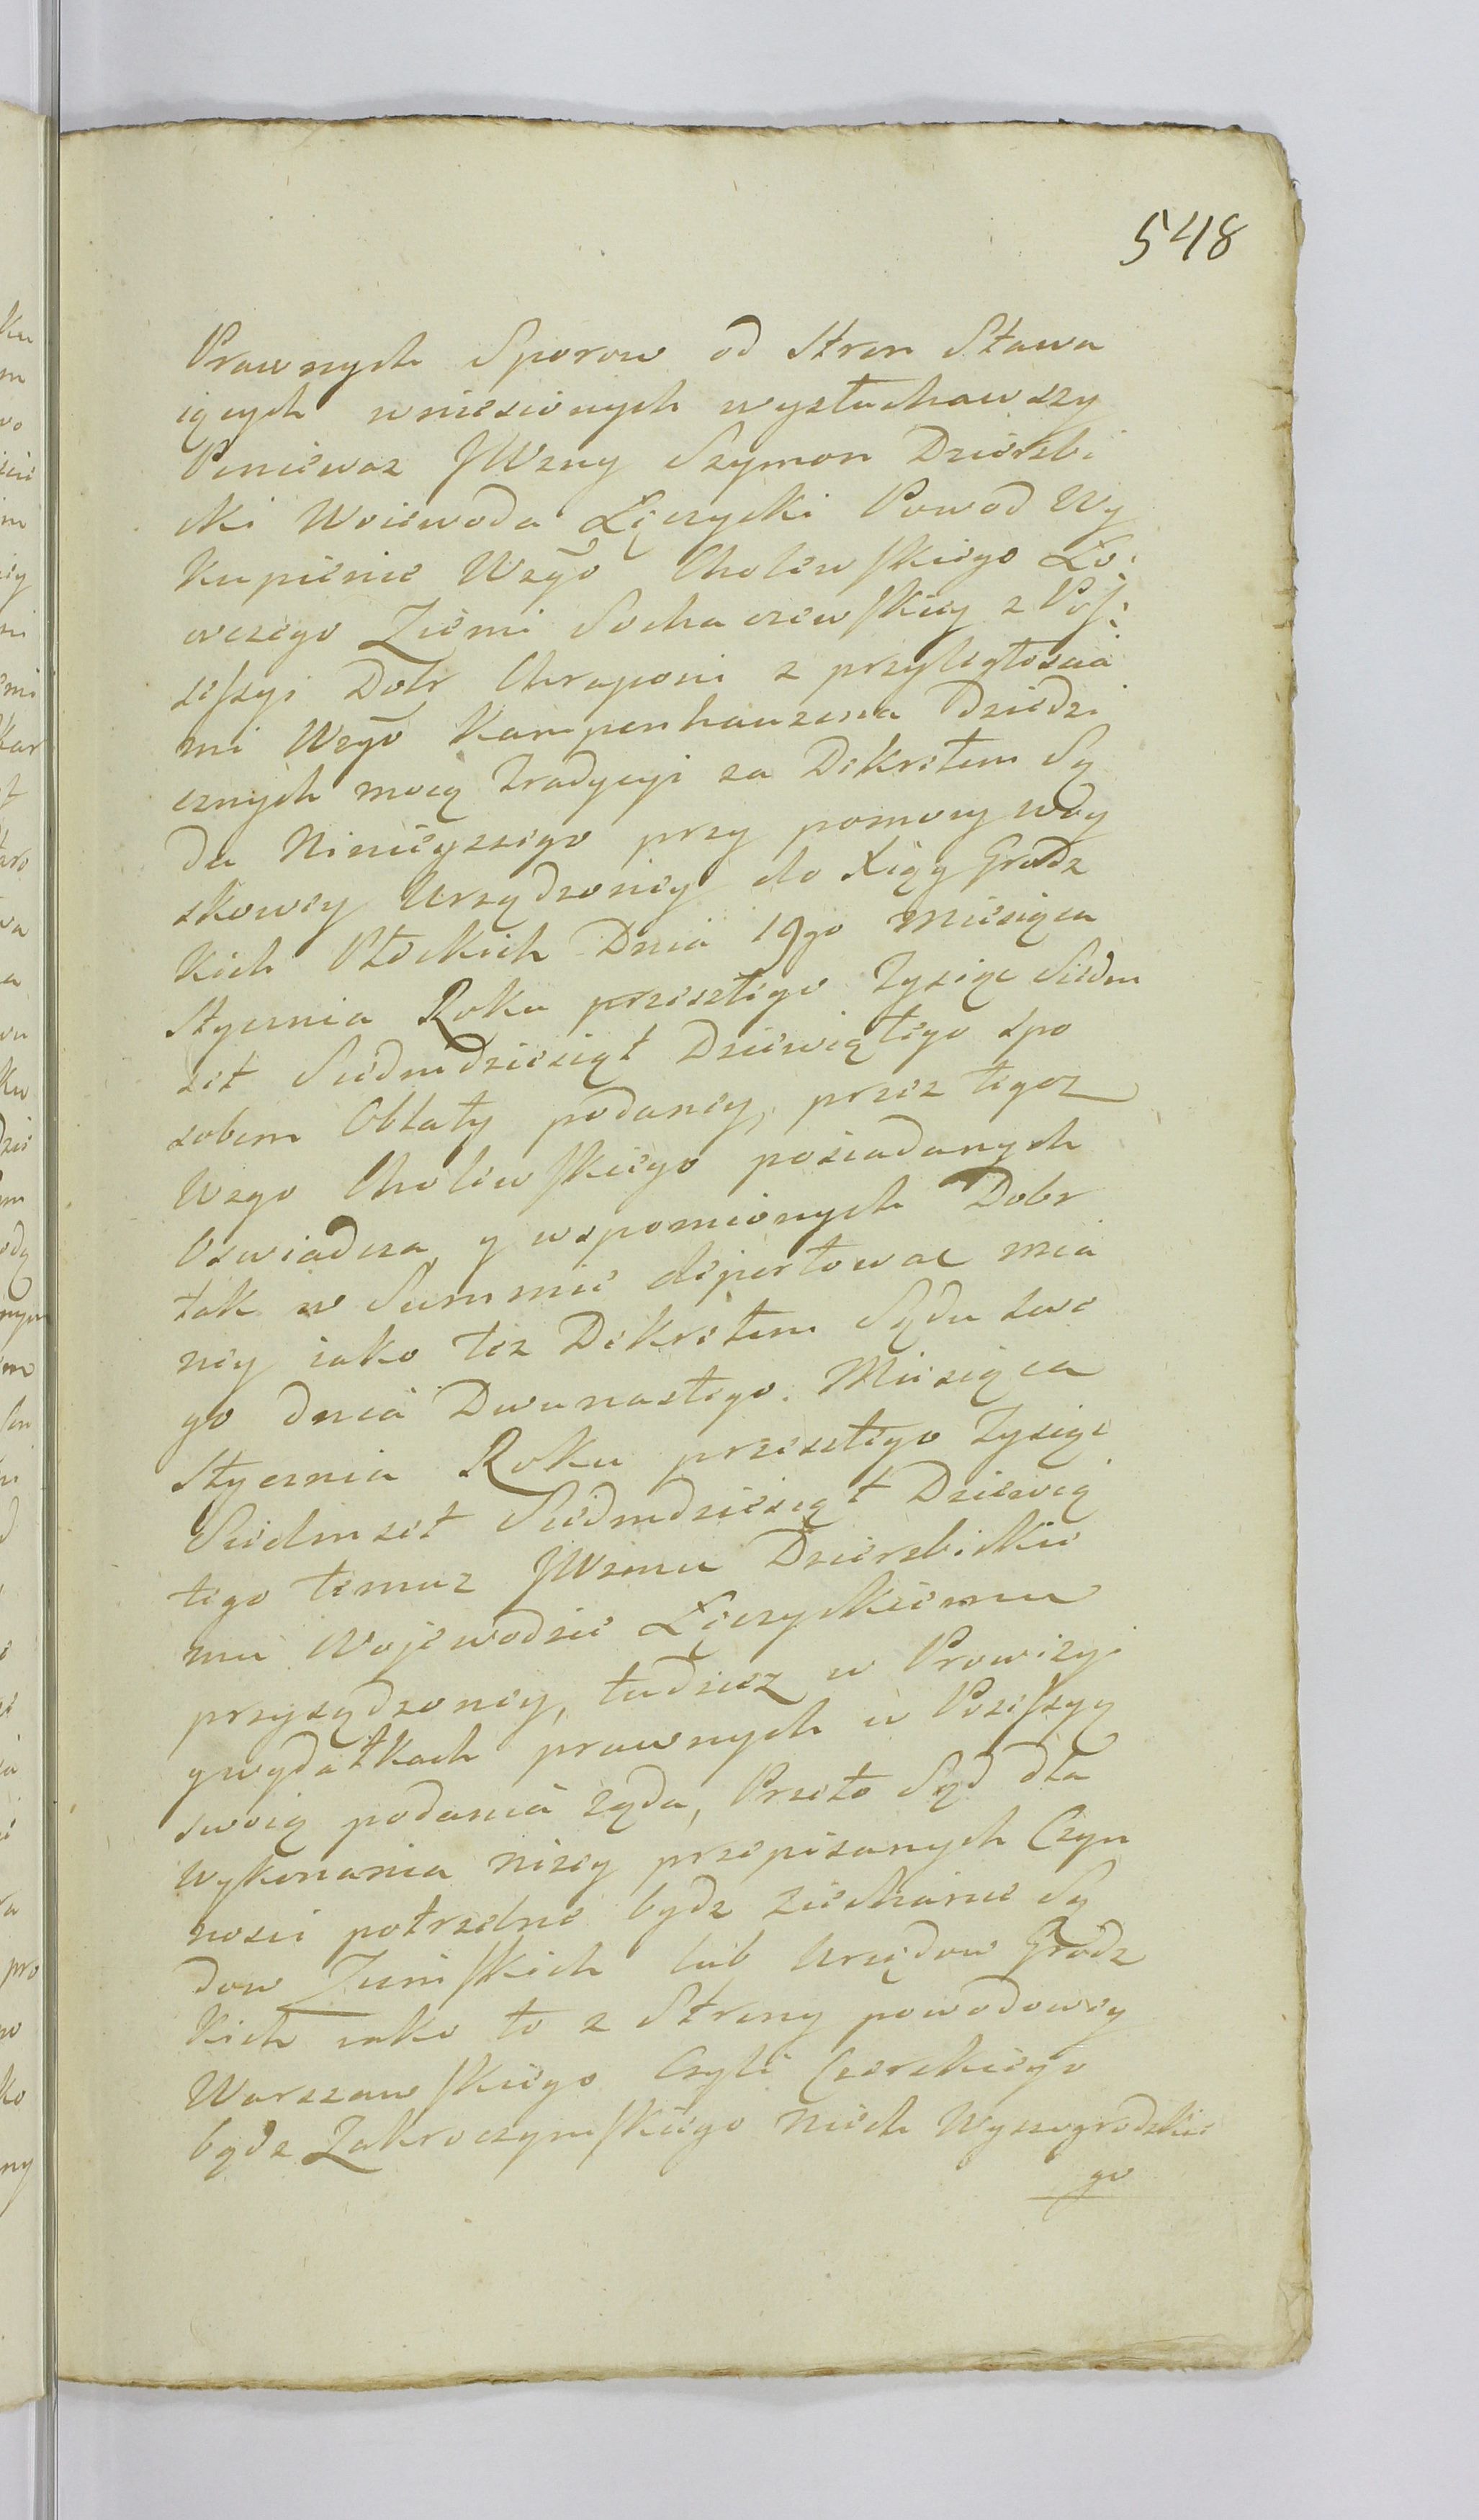 548
Prawnych Sporow od Stron Stawa
iących wniesionych wysłuchawszy
Ponieważ JWzny Szymon Dzierzbi
cki Woiewoda Łęczycki Powod Wy
kupienie Wzgo Cholewskiego Ło:
wczego Ziemi Sochaczewskiey z Pos:
sessyi Dobr Chraponi z przyległoscia
mi Wzgo Kampenhauzena Dziedzi
cznych mocą Tradycyi za Dekretem Są
du Ninieyszego przy pomocy woy
skowey Urządzoney do Xiąg Grodz
kich Płockich Dnia 19go Miesiąca
Stycznia Roku przeszłego Tysiąc Siedm
set Siedmdziesiąt Dziewiątego spo
sobem Oblaty podaney, przez tegoz
Wzgo Cholewskiego posiadanych
Oswiadcza, y wspomionych Dobr
tak w Summie deportowac mia
ney iako tez Dekretem Sądu swe
go dnia Dwunastego Miesiąca
Stycznia Roku przeszłego Tysiąc
Siedmset Siedmdziesiąt Dziewią
tego temuz JWzmu Dzierzbickie
mu Wojewodzie Łęczyckiemu
przysądzoney, tudziez w Prowizyi
y wydatkach prawnych w Possessyą
swoią podania ząda, Przeto Sąd dla
Wykonania nizey przepisanych Czyn
nosci potrzebne bydz ziechanie Są
dow Ziemskich lub Urzędow Grodz
kich iako to z Strony powodowey
Warszawskiego Czyli Czerskiego
bądz Zakroczymskiego niech Wyszogrodzkie
go